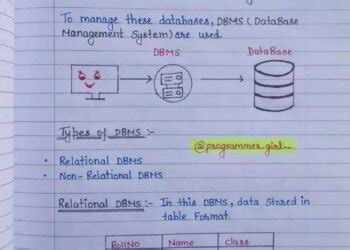 To manage these databases, DBMS (DataBase
Management System) are used.
DBMS
DataBase
Types of DBMS :-
@programmer_girl__
• Relational DBMS
• Non-Relational DBMS
Relational DBMS :- In this DBMS, data stored in
table Format.
RollNO Name class